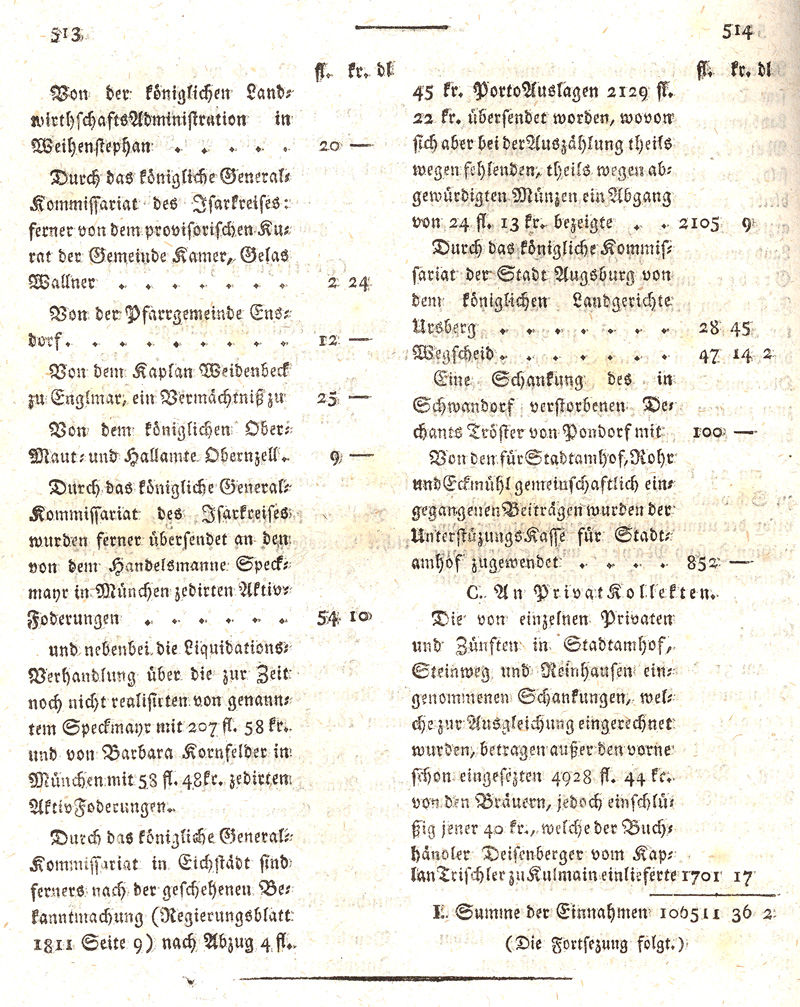 513
514
fl. kr. dl
Von der königlichen Land-
wirthschaftsAdministration in
Weihenstephan . . . . . 20 —
Durch das königliche General-
Kommissariat des Isarkreises:
ferner von dem provisorischen Ku-
rat der Gemeinde Kamer, Gelas
Wallner . . . . . . 2 24
Von der Pfarrgemeinde Ens-
dorf . . . . . . . . 12 —
Von dem Kaplan Weidenbeck
zu Englmar, ein Vermächtniß zu 25 —
Von dem königlichen Ober-
Maut- und Hallamte Obernzell . 9 —
Durch das königliche General-
Kommissariat des Isarkreises
wurden ferner übersendet an den
von dem Handelsmanne Speck-
mayr in München zedirten Aktiv-
Foderungen . . . . . . 54 10
und nebenbei die Liquidations-
Verhandlung über die zur Zeit
noch nicht realisirten von genann-
tem Speckmayr mit 207 fl. 58 kr.
und von Barbara Kornfelder in
München mit 58 fl. 48 kr. zedirten
AktivFoderungen.
Durch das königliche General-
Kommissariat in Eichstädt sind
ferners nach der geschehenen Be-
kanntmachung (Regierungsblatt
1811 Seite 9) nach Abzug 4 fl.
fl. kr. dl
45 kr. PortoAuslagen 2129 fl.
22 kr. übersendet worden, wovon
sich aber bei der Auszählung theils
wegen fehlenden, theils wegen ab-
gewürdigten Münzen ein Abgang
von 24 fl. 13 kr. bezeigte . . 2105 9
Durch das königliche Kommis-
sariat der Stadt Augsburg von
dem königlichen Landgerichte
Ursberg . . . . . . . 28 45
Wegscheid . . . . . . . 47 14 2
Eine Schankung des in
Schwandorf verstorbenen De-
chants Tröster von Pondorf mit 100 —
Von den für Stadtamhof, Rohr
und Eckmühl gemeinschaftlich ein-
gegangenen Beiträgen wurden der
UnterstüzungsKasse für Stadt-
amhof zugewendet . . . . 852 —
C. An PrivatKollekten.
Die von einzelnen Privaten
und Zünften in Stadtamhof,
Steinweg und Reinhausen ein-
genommenen Schankungen, wel-
che zur Ausgleichung eingerechnet
wurden, betragen außer den vorne
schon eingesezten 4928 fl. 44 kr.
von den Bräuern, jedoch einschlü-
ßig jener 40 kr., welche der Buch-
händler Deisenberger vom Kap-
lan Trischler zu Kulmain einlieferte 1701 17
I. Summe der Einnahmen 106511 36 2
(Die Fortsezung folgt.)